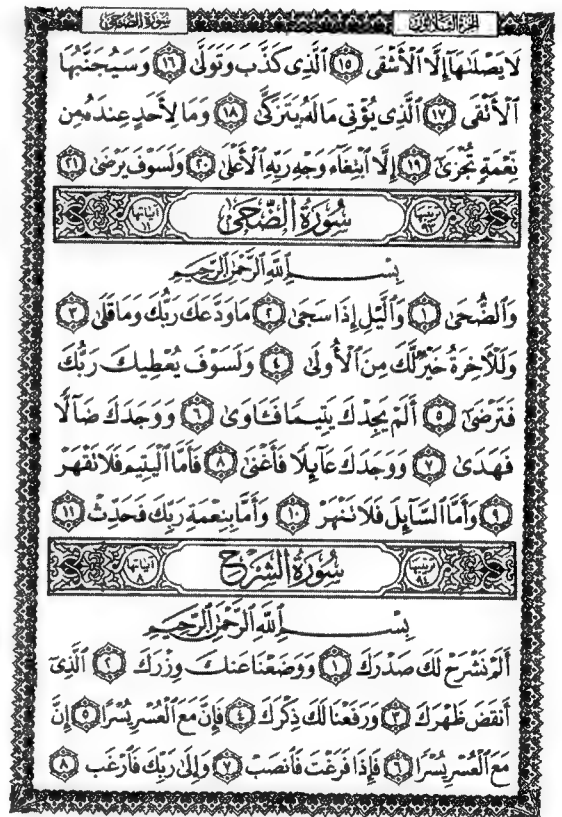 سُورَةُ الضُّحَىٰ الجُزْءُ الثَّلَاثُونَ
لَا يَصْلَىٰهَآ إِلَّا ٱلْأَشْقَى ١٥ ٱلَّذِى كَذَّبَ وَتَوَلَّىٰ ١٦ وَسَيُجَنَّبُهَا
ٱلْأَتْقَى ١٧ ٱلَّذِى يُؤْتِى مَالَهُۥ يَتَزَكَّىٰ ١٨ وَمَا لِأَحَدٍ عِندَهُۥ مِن
نِّعْمَةٍ تُجْزَىٰٓ ١٩ إِلَّا ٱبْتِغَآءَ وَجْهِ رَبِّهِ ٱلْأَعْلَىٰ ٢٠ وَلَسَوْفَ يَرْضَىٰ ٢١
ترتيبها ٩٣ سُورَةُ الضُّحَىٰ آياتها ١١
بِسْمِ ٱللَّهِ ٱلرَّحْمَٰنِ ٱلرَّحِيمِ
وَٱلضُّحَىٰ ١ وَٱلَّيْلِ إِذَا سَجَىٰ ٢ مَا وَدَّعَكَ رَبُّكَ وَمَا قَلَىٰ ٣
وَلَلْأَخِرَةُ خَيْرٌ لَّكَ مِنَ ٱلْأُولَىٰ ٤ وَلَسَوْفَ يُعْطِيكَ رَبُّكَ
فَتَرْضَىٰٓ ٥ أَلَمْ يَجِدْكَ يَتِيمًا فَـَٔاوَىٰ ٦ وَوَجَدَكَ ضَآلًّا
فَهَدَىٰ ٧ وَوَجَدَكَ عَآئِلًا فَأَغْنَىٰ ٨ فَأَمَّا ٱلْيَتِيمَ فَلَا تَقْهَرْ
٩ وَأَمَّا ٱلسَّآئِلَ فَلَا تَنْهَرْ ١٠ وَأَمَّا بِنِعْمَةِ رَبِّكَ فَحَدِّثْ ١١
ترتيبها ٩٤ سُورَةُ الشَّرْحِ آياتها ٨
بِسْمِ ٱللَّهِ ٱلرَّحْمَٰنِ ٱلرَّحِيمِ
أَلَمْ نَشْرَحْ لَكَ صَدْرَكَ ١ وَوَضَعْنَا عَنكَ وِزْرَكَ ٢ ٱلَّذِىٓ
أَنقَضَ ظَهْرَكَ ٣ وَرَفَعْنَا لَكَ ذِكْرَكَ ٤ فَإِنَّ مَعَ ٱلْعُسْرِ يُسْرًا ٥ إِنَّ
مَعَ ٱلْعُسْرِ يُسْرًا ٦ فَإِذَا فَرَغْتَ فَٱنصَبْ ٧ وَإِلَىٰ رَبِّكَ فَٱرْغَب ٨